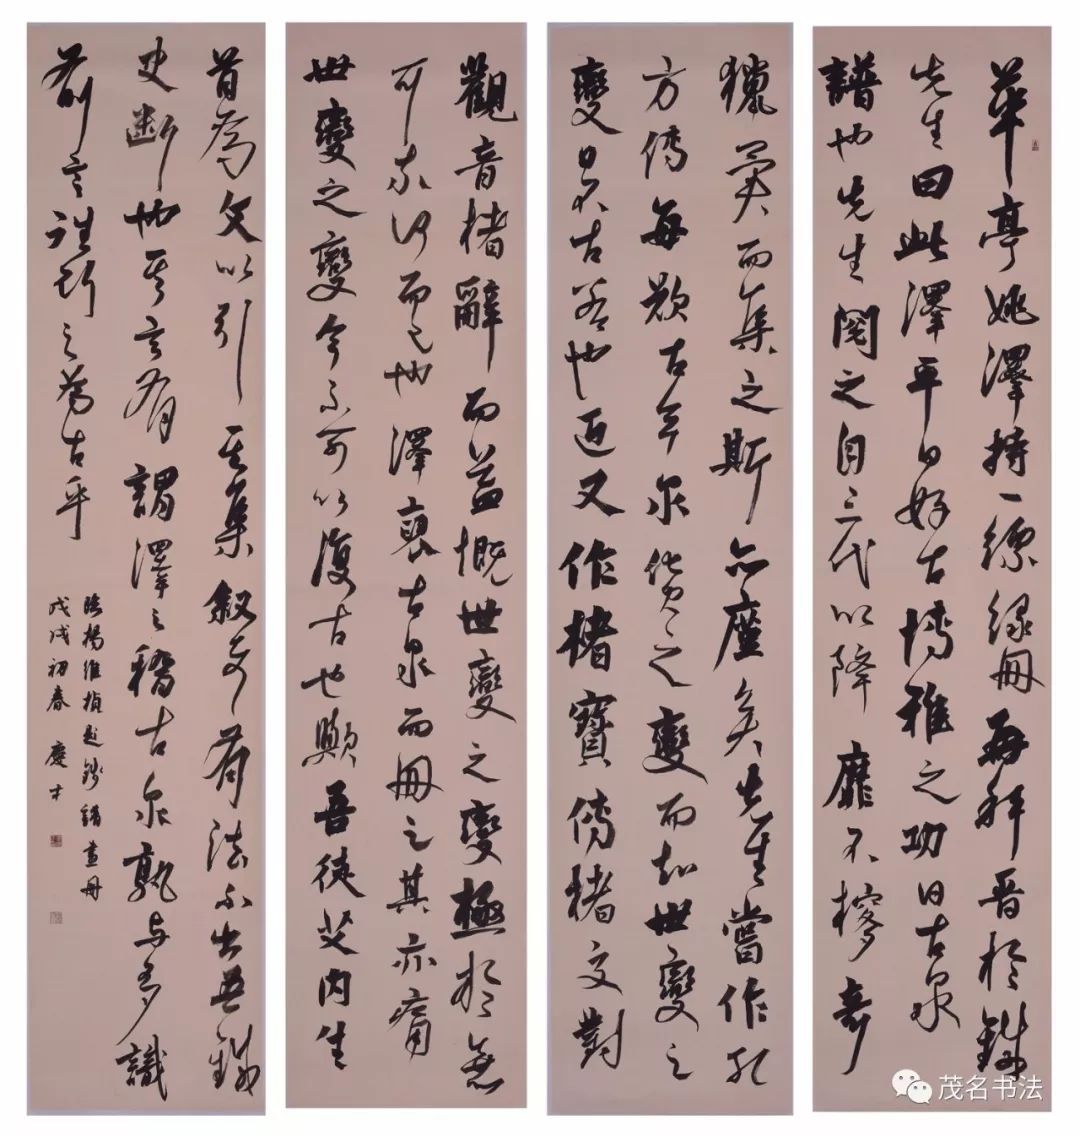 華亭姚澤持一縹緣冊再拜晋於銕
先生曰此澤平日好古博雅之功曰古泉
譜也先生閱之自三代以降靡不搜奇
獵異而集之斯亦廑矣先生嘗作孔
方傳每歎古今泉貨之變而知世變之
變日不古若也近又作楮寶傳楮文對
觀音楮辭而益慨世變之變極於無
可奈何而已也澤裒古泉而冊之其亦痛
世變之變今不可以復古也歟吾徒艾内生
首為文以引其集叙事有法不出吾銕
史斷也其言有謂澤之稽古泉孰與多識
前言往行之為古乎
臨楊維楨題錢譜冊
戊戌初春 慶才
茂名书法